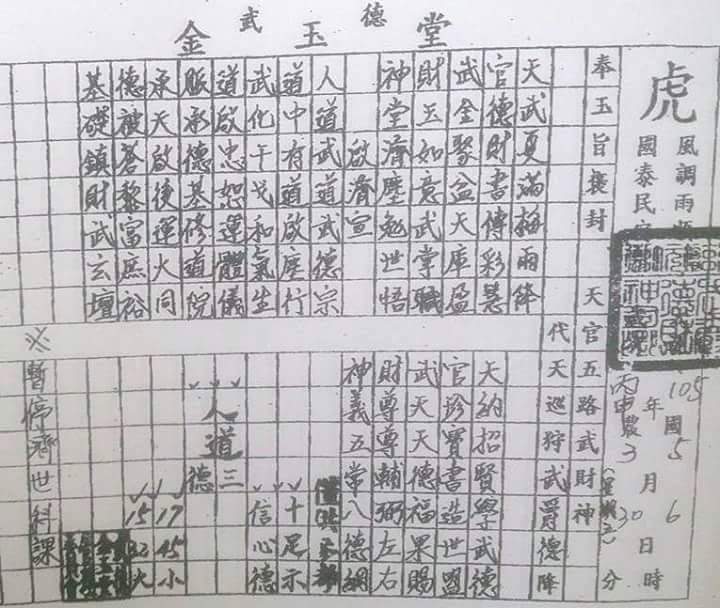 武德
金玉堂
虎
風調雨
國泰民
奉玉旨褒封 天官五路武財神
代天巡狩武爵德降
國105年5月6日時分
丙申農3 30
天武夏滿梅雨降
官德財書傳彩慧
武金聚盆天庫盈
財玉如意武掌職
神堂濟塵勉世悟
啟濟宣
人道武道武德宗
道中有道啟塵行
武化干戈和氣生
道啟忠恕運體儀
脈承德基修道院
承天啟後運大同
德被蒼黎富庶裕
基礎鎮財武玄壇
天納招賢學武德
官珍寶書造世盟
武天天德福果賜
財尊尊輔弼左右
神義五常八德綱
十足示
信心德
人道
三德
17 45 小
15 32 大
※暫停濟世科課